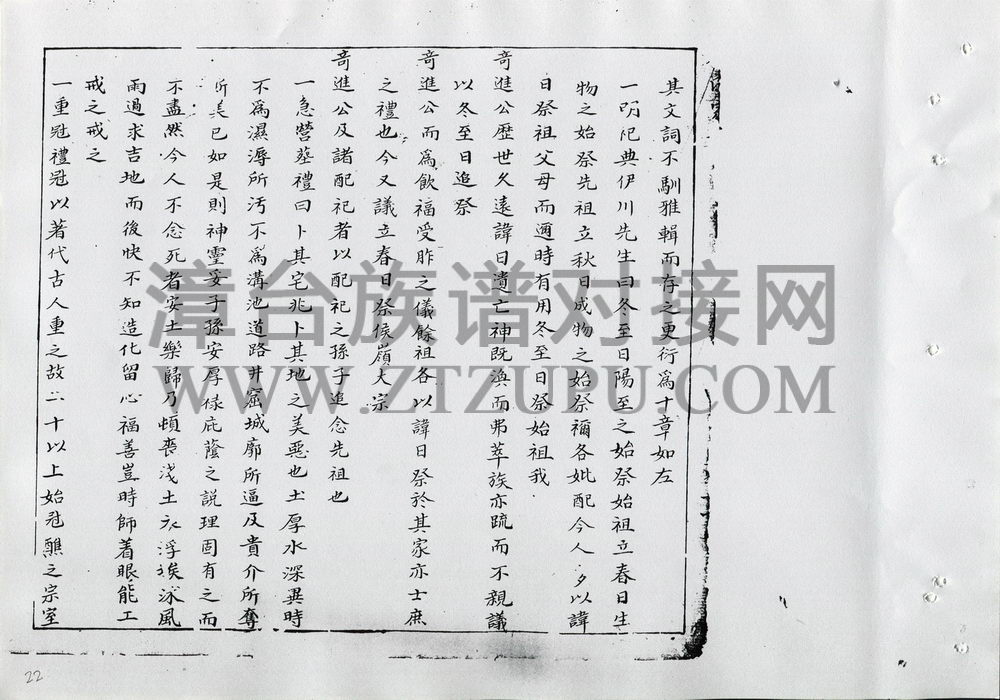 其文詞不馴雅輯而存之更衍爲十章如左
一明祀典伊川先生曰冬至日陽至之始祭始祖立春日生
物之始祭先祖立秋日成物之始祭禰各妣配今人多以諱
日祭祖父母而適時有用冬至日祭始祖我
奇進公歷世久遠諱日遺亡神既渙而弗萃族亦疏而不親議
以冬至日追祭
奇進公而爲飲福受胙之儀餘祖各以諱日祭於其家亦士庶
之禮也今又議立春日祭侯嶺大宗
奇進公及諸配祀者以配祀之孫子追念先祖也
一急營塟禮曰卜其宅兆卜其地之美惡也土厚水深異時
不爲濕溽所汚不爲溝池道路井窟城廓所逼及貴介所奪
所美已如是則神靈妥子孫安厚祿庇蔭之説理固有之而
不盡然今人不念死者安土樂歸乃頓喪淺土永浮
雨過求吉地而後快不知造化留心福善豈時師着眼能工
戒之戒之
一重冠禮冠以著代古人重之故二十以上始冠醮之宗室
漳台族谱对接网
WWW.ZTZUPU.COM
22